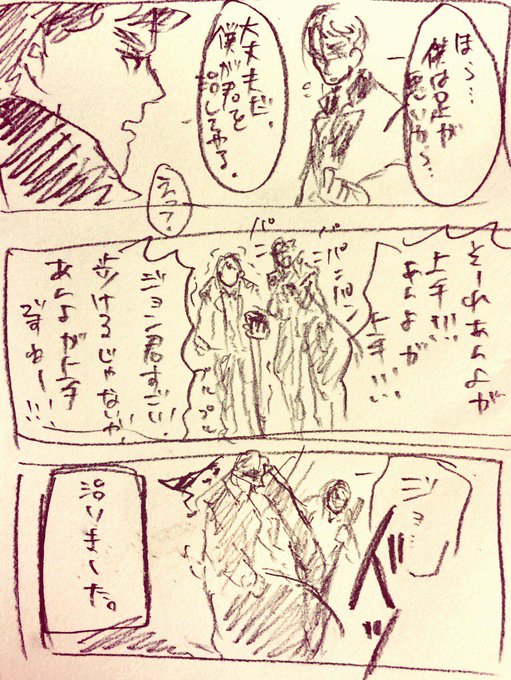 ほら…
僕は足が
悪いから…
大丈夫だ、
僕が君を
治してやる。
えっ?
そーれあんよが
上手!!!
あんよが
上手!!!
パンパンパン
ジョン君すごい!
歩けるじゃないか、
あんよが上手
ですねー!!
プルプル
ジョ…
治りました。